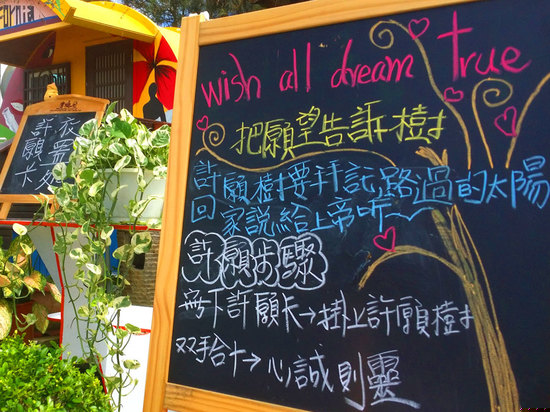 fornia
許願卡
wish all dream true
把願望告訴樹
許願樹要拜託路過的太陽
回家說給上帝聽~
許願步驟
寫下許願卡→掛上許願樹
双手合十→心誠則靈